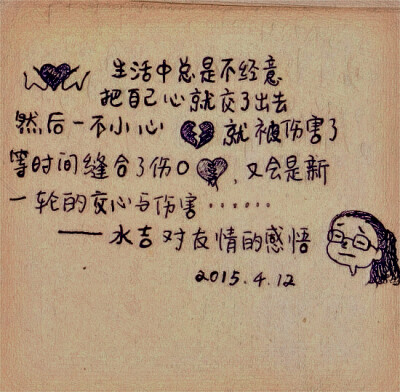 生活中总是不经意
把自己心就交了出去
然后一不小心 就被伤害了
等时间缝合了伤口，又会是新
一轮的交心与伤害……
——水吉对友情的感悟
2015.4.12